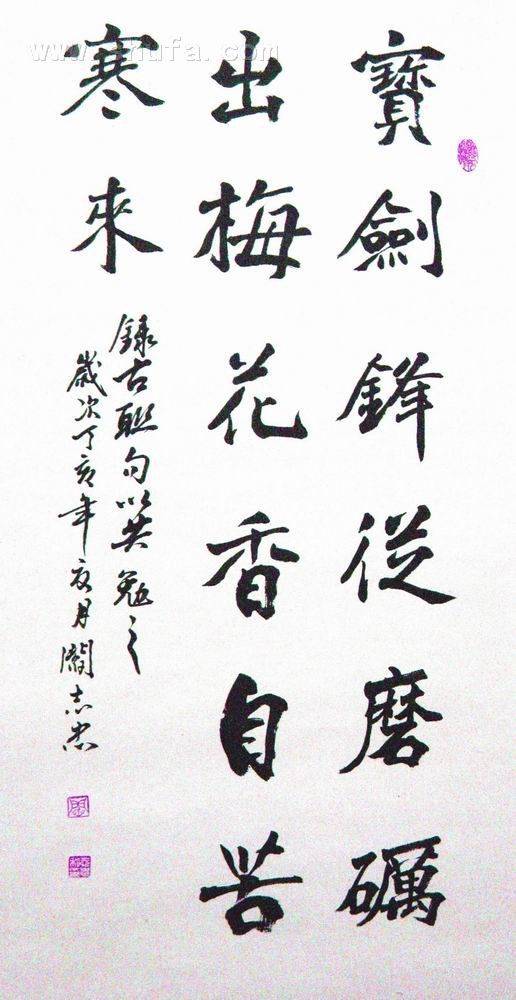 www.shufa.com
寶劍鋒從磨礪
出梅花香自苦
寒來
錄古聯句以共勉之
歲次丁亥年夏月志忠